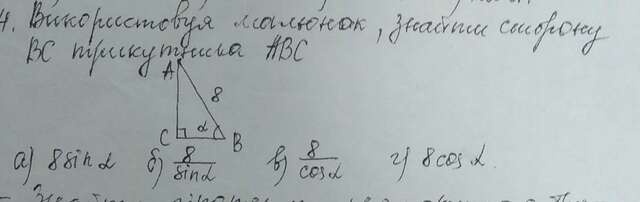 4. Використовуя малюнок, знайти сторону
BC трикутника ABC
A
8
C α B
а) 8 sin α б) 8/sin α в) 8/cos α г) 8 cos α.